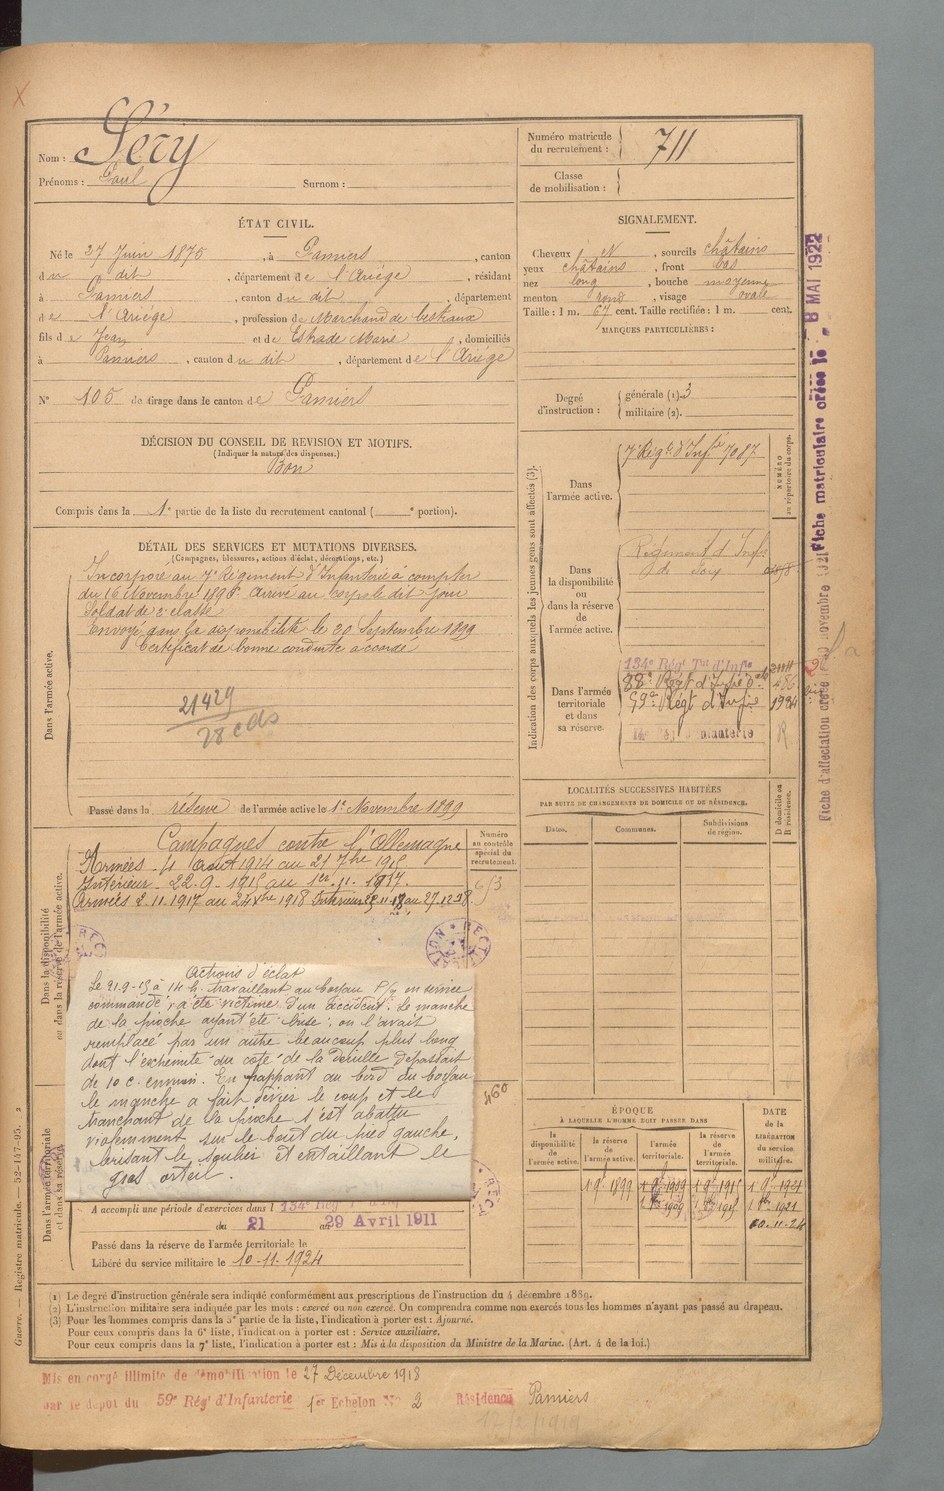 Nom : Séry
Prénoms : Paul Surnom :
Numéro matricule du recrutement : 711
Classe de mobilisation :
ÉTAT CIVIL.
Né le 27 Juin 1875, à Pamiers, canton
du dit, département de l'Ariège, résidant
à Pamiers, canton du dit, département
de l'Ariége, profession de Marchand de bestiaux
fils de Jean et de Estrade Marie, domiciliés
à Pamiers, canton du dit, département de l'Ariége
N° 105 de tirage dans le canton de Pamiers
SIGNALEMENT.
Cheveux et, sourcils châtains
yeux châtains, front bas
nez long, bouche moyenne
menton rond, visage ovale
Taille : 1 m. 67 cent. Taille rectifiée : 1 m. cent.
MARQUES PARTICULIÈRES :
Degré d'instruction : générale (1). 3
militaire (2).
DÉCISION DU CONSEIL DE REVISION ET MOTIFS.
(Indiquer la nature des dispenses.)
Bon
Compris dans la 1e partie de la liste du recrutement cantonal ( e portion).
DÉTAIL DES SERVICES ET MUTATIONS DIVERSES.
(Campagnes, blessures, actions d'éclat, décorations, etc.)
Dans l'armée active.
Incorporé au 7e Régiment d'Infanterie à compter
du 16 Novembre 1896. Arrivé au corps le dit jour
Soldat de 2e classe
Envoyé dans la disponibilité le 30 Septembre 1899
Certificat de bonne conduite accordé
21429
28 cds
Passé dans la réserve de l'armée active le 1er Novembre 1899
Indication des corps auxquels les jeunes gens sont affectés (3).
NUMÉRO au répertoire du corps.
Dans l'armée active.
7e Régt d'Infie 7087
Dans la disponibilité ou dans la réserve de l'armée active.
Régiment d'Infie
de
Dans l'armée territoriale et dans sa réserve.
134e Régt Tal d'Infie
88e Régt d'Infie
59e Régt d'Infie 1924
14e Rég. d'Infanterie R
LOCALITÉS SUCCESSIVES HABITÉES
PAR SUITE DE CHANGEMENTS DE DOMICILE OU DE RÉSIDENCE.
Dates. Communes. Subdivisions de région. D domicile ou R résidence.
Dans la disponibilité ou dans la réserve de l'armée active.
Numéro au contrôle spécial du recrutement.
Campagnes contre l'Allemagne
Armées 4 Août 1914 au 21 7bre 1915
Intérieur 22-9-1915 au 1er-11-1917.
Armées 2.11.1917 au 24 xbre 1918 Intérieur au 27-12-18
Actions d'éclat
Le 21-9-15 à 14 h. travaillant au boyau en service
commandé, a été victime d'un accident. Le manche
de la pioche ayant été brisé, on l'avait
remplacé par un autre beaucoup plus long
dont l'extrémité du coté de la douille dépassait
de 10 c. environ. En frappant au bord du boyau
le manche a fait dévier le coup et le
tranchant de la pioche s'est abattu
violemment sur le bout du pied gauche,
brisant le soulier et entaillant le
gros orteil.
460
Dans l'armée territoriale et dans sa réserve.
A accompli une période d'exercices dans l 134e Régt Tal d'Inf
du 21 au 29 Avril 1911
Passé dans la réserve de l'armée territoriale le
Libéré du service militaire le 10-11-1924
ÉPOQUE
À LAQUELLE L'HOMME DOIT PASSER DANS
la disponibilité de l'armée active. la réserve de l'armée active. l'armée territoriale. la réserve de l'armée territoriale. DATE de la LIBÉRATION du service militaire.
1 9e 1899 1 9e 1909 1 9e 1915 1 9e 1921
1 8bre 1909 1 8bre 1915 1 8bre 1921
10-11-24
(1) Le degré d'instruction générale sera indiqué conformément aux prescriptions de l'instruction du 4 décembre 1889.
(2) L'instruction militaire sera indiquée par les mots : exercé ou non exercé. On comprendra comme non exercés tous les hommes n'ayant pas passé au drapeau.
(3) Pour les hommes compris dans la 5e partie de la liste, l'indication à porter est : Ajourné.
Pour ceux compris dans la 6e liste, l'indication à porter est : Service auxiliaire.
Pour ceux compris dans la 7e liste, l'indication à porter est : Mis à la disposition du Ministre de la Marine. (Art. 4 de la loi.)
Mis en congé illimité de démobilisation le 27 Décembre 1918
par le dépôt du 59e Régt d'Infanterie 1er Échelon N° 2 Résidence Pamiers
Guerre. — Registre matricule. — 52-147-95.
Fiche d'affectation créée novembre 1921
Fiche matriculaire créée le 8 MAI 1922